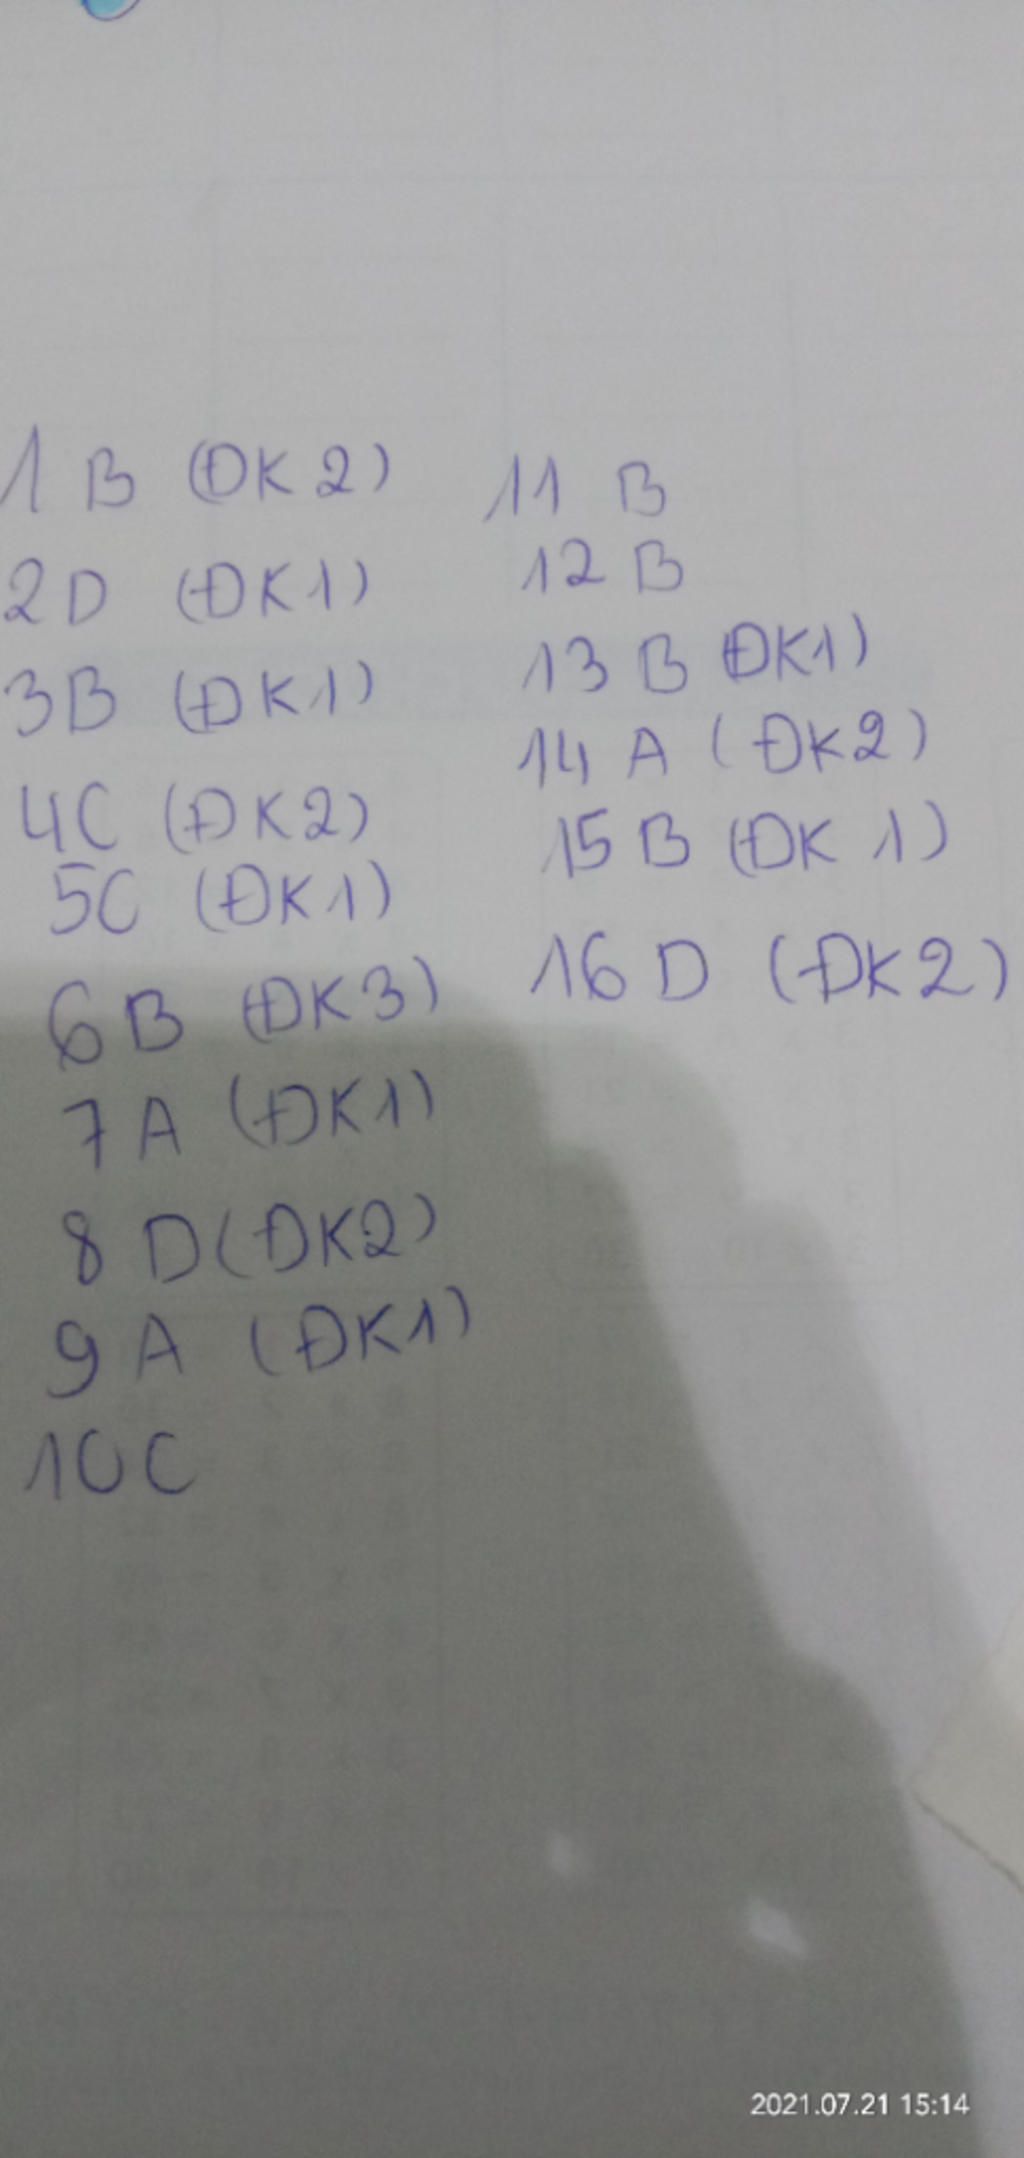 1 B (ĐK 2)
2D (ĐK1)
3B (ĐK1)
4C (ĐK2)
5C (ĐK1)
6 B (ĐK3)
7 A (ĐK1)
8 D (ĐK2)
9 A (ĐK1)
10 C
11 B
12 B
13 B ĐK1)
14 A (ĐK2)
15 B (ĐK 1)
16 D (ĐK2)
2021.07.21 15:14